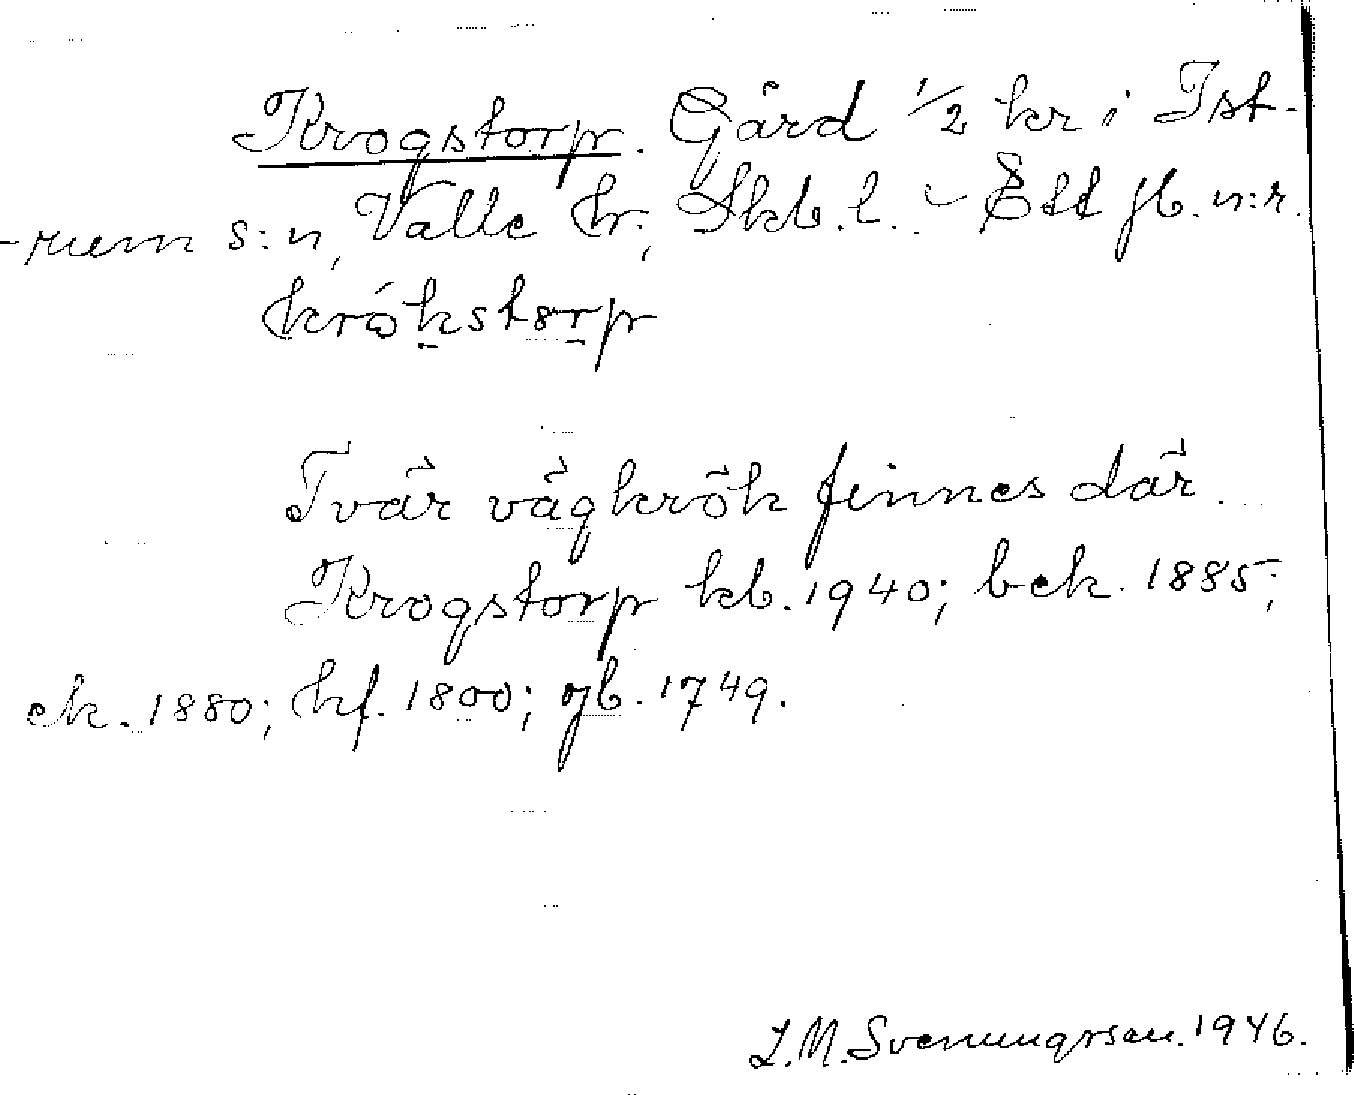 Krogstorp. Gård 1/2 kr i Ist-
-rum s:n, Valle hr., Skb. l. - Ett jb. n:r.
krókstorp
Tvär vägkrök finnes där.
Krogstorp kb. 1940; bek. 1885;
ek. 1880; hf. 1800; jb. 1749.
L.M. Svenungsson. 1946.